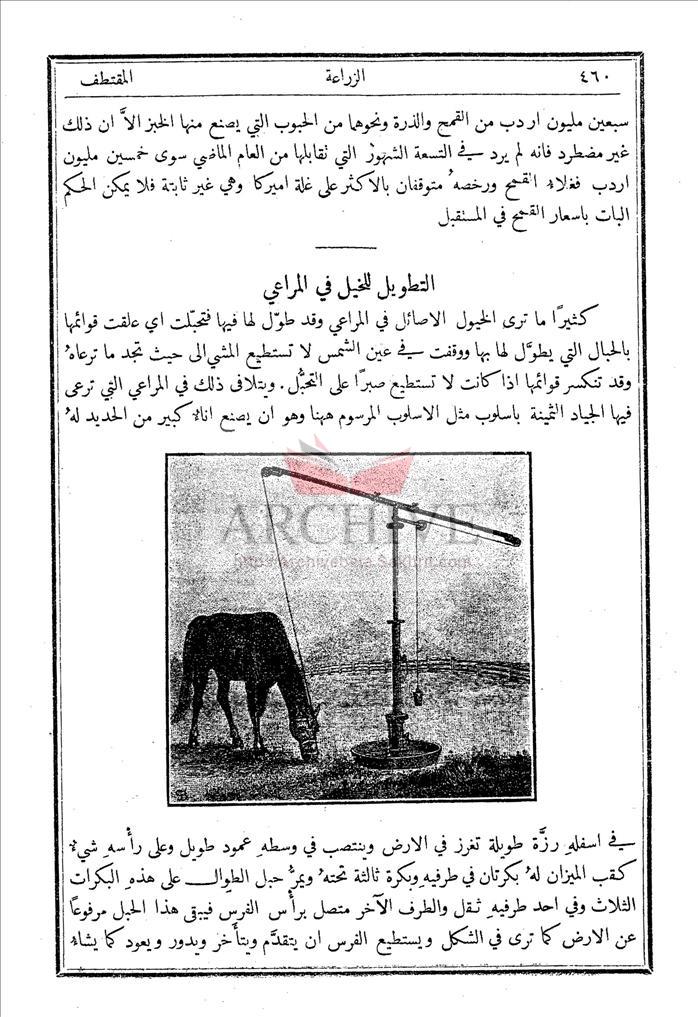 ٤٦٠ الزراعة المقتطف
سبعين مليون اردب من القمح والذرة ونحوها من الحبوب التي يصنع منها الخبز الاَّ ان ذلك
غير مضطرد فانه لم يرد في التسعة الشهور التي تقابلها من العام الماضي سوى خمسين مليون
اردب فغلاء القمح ورخصهُ متوقفان بالاكثر على غلة اميركا وهي غير ثابتة فلا يمكن الحكم
البات باسعار القمح في المستقبل
التطويل للخيل في المراعي
كثيرًا ما ترى الخيول الاصائل في المراعي وقد طوّل لها فيها فتحبّلت اي علقت قوائمها
بالحبال التي يطوَّل لها بها ووقفت في عين الشمس لا تستطيع المشي الى حيث تجد ما ترعاهُ
وقد تنكسر قوائمها اذا كانت لا تستطيع صبرًا على التحبُّل. ويتلافى ذلك في المراعي التي ترعى
فيها الجياد الثمينة باسلوب مثل الاسلوب المرسوم ههنا وهو ان يصنع اناءٌ كبير من الحديد لهُ
ARCHIVE
http://archivebeta.Sakhrit.com
في اسفلهِ رزَّة طويلة تغرز في الارض وينتصب في وسطهِ عمود طويل وعلى رأسهِ شيءٌ
كقب الميزان لهُ بكرتان في طرفيهِ وبكرة ثالثة تحتهُ ويمرُّ حبل الطوال على هذهِ البكرات
الثلاث وفي احد طرفيهِ ثقل والطرف الآخر متصل برأس الفرس فيبقى هذا الحبل مرفوعًا
عن الارض كما ترى في الشكل ويستطيع الفرس ان يتقدَّم ويتأخر ويدور ويعود كما يشاءُ